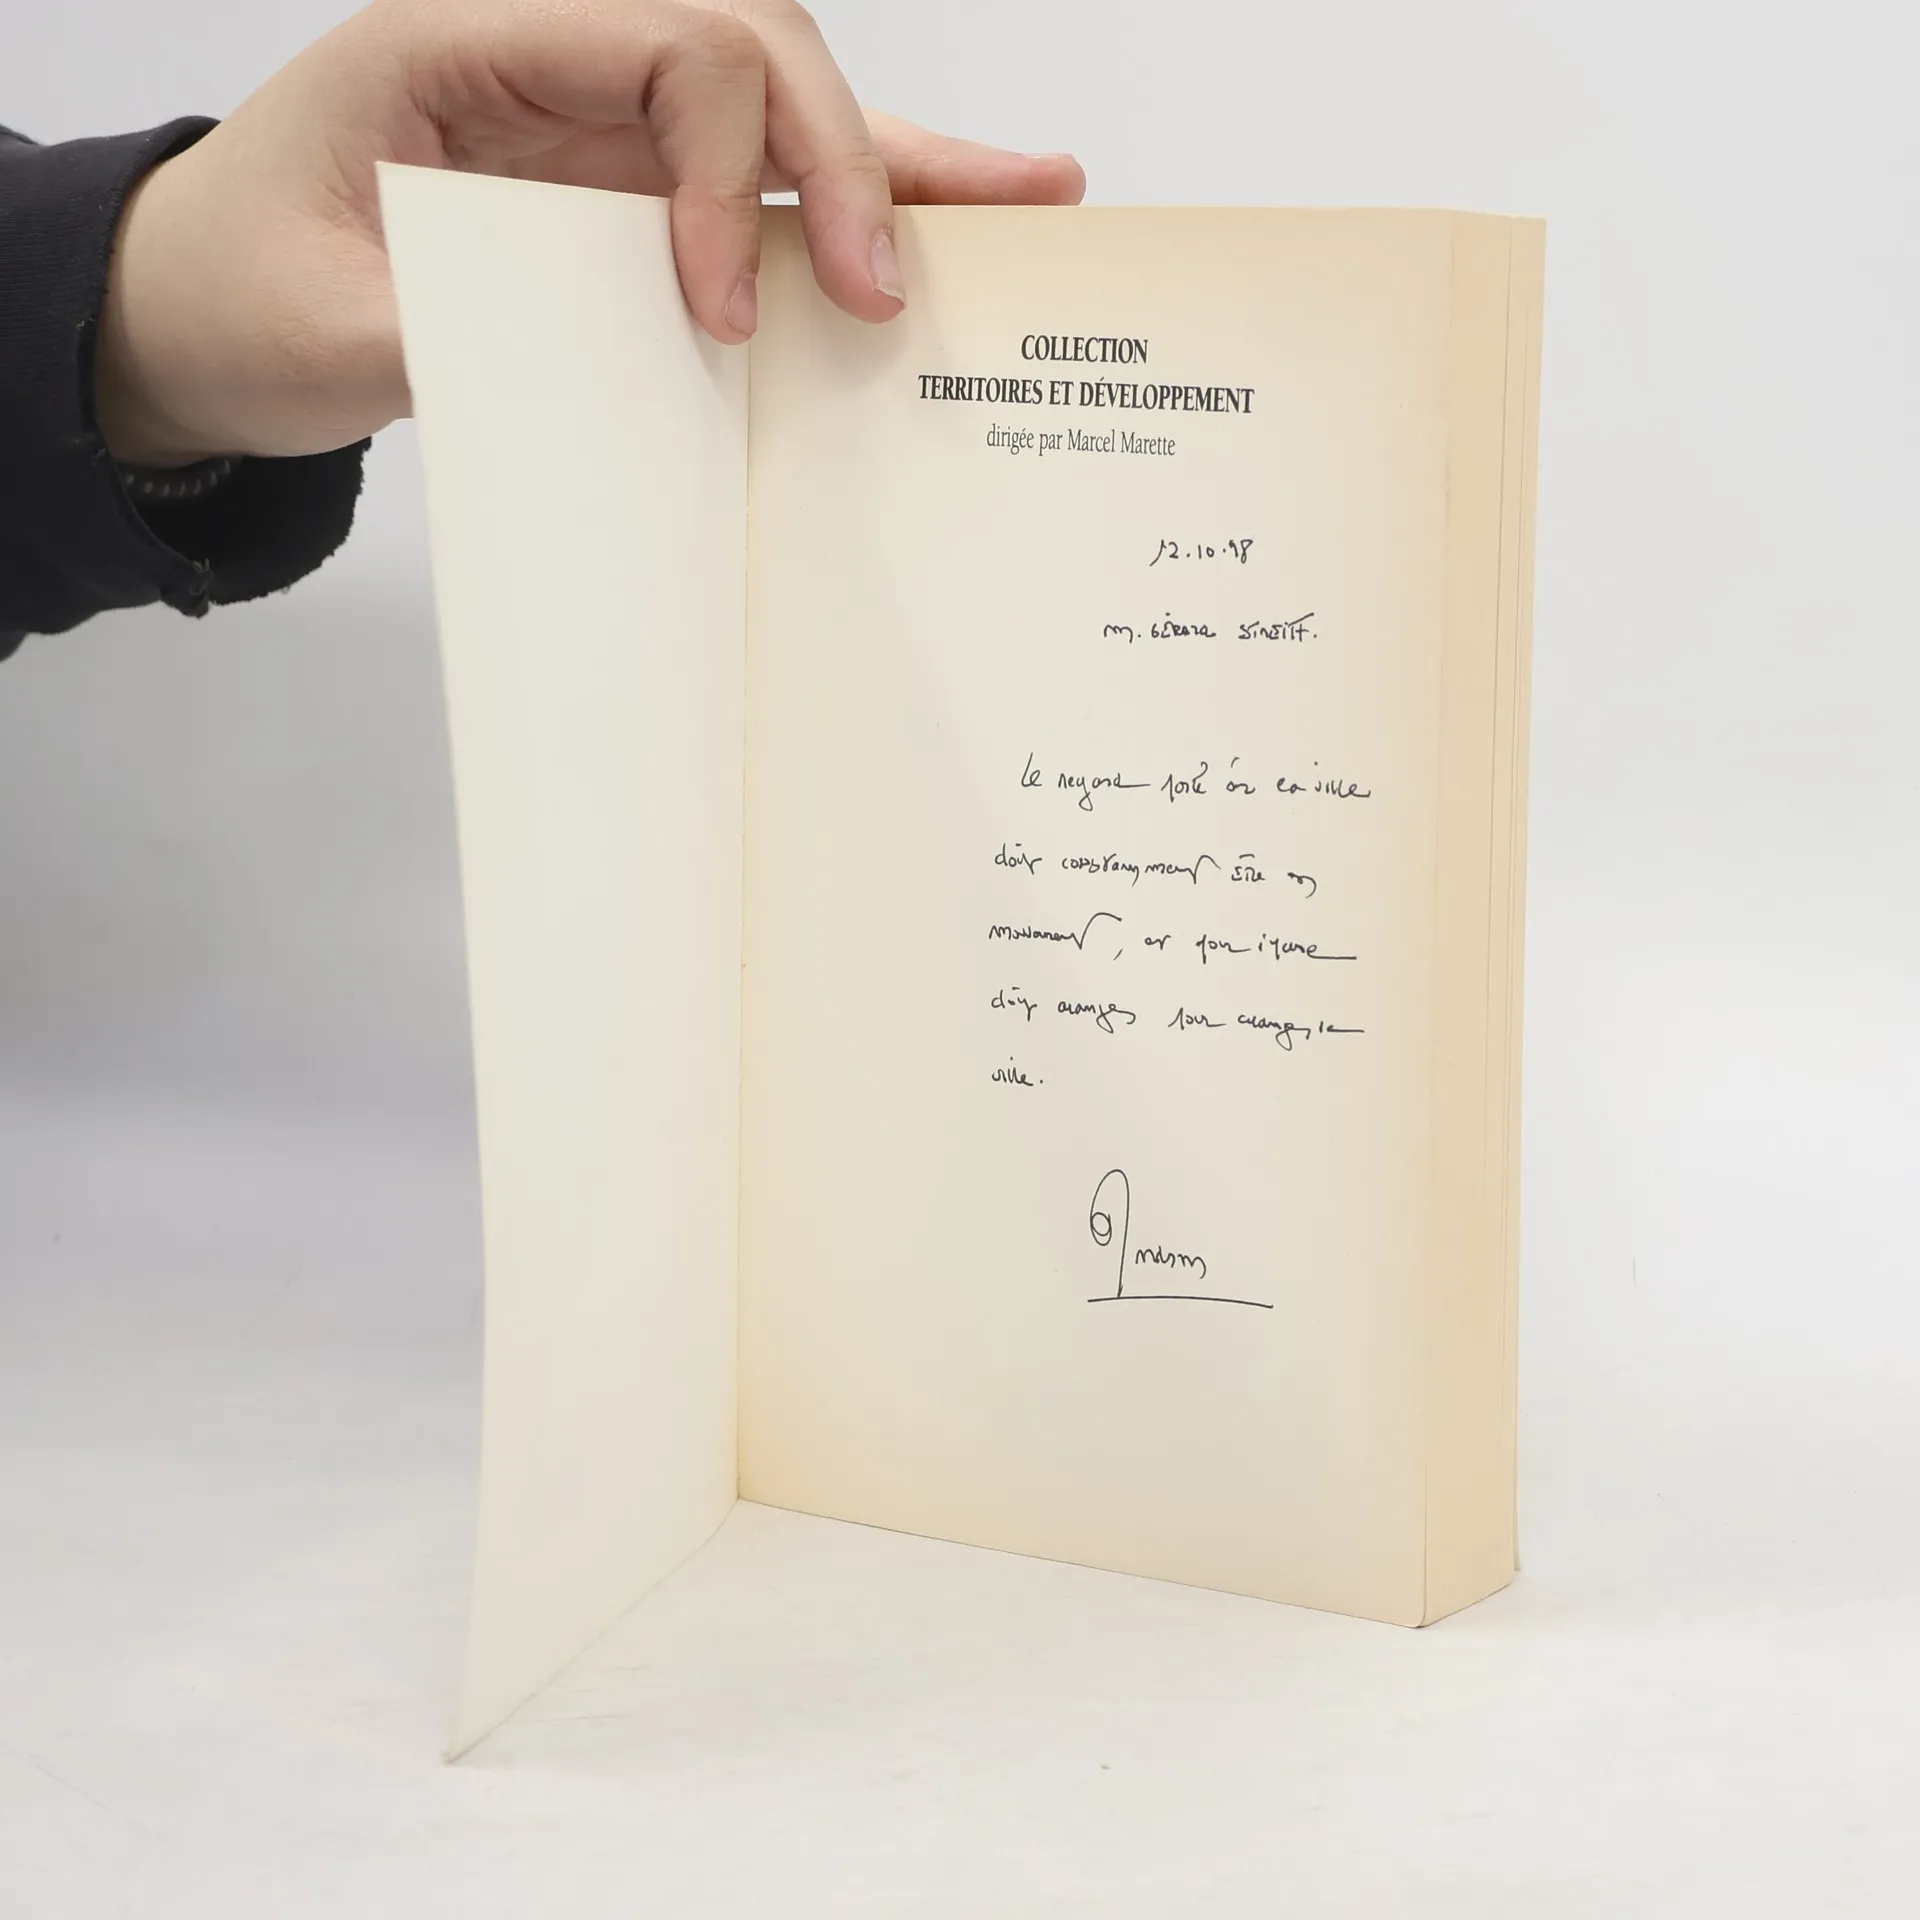 COLLECTION
TERRITOIRES ET DÉVELOPPEMENT
dirigée par Marcel Marette
12.10.98
M. GÉRARD
Le regard porté sur la ville
doit constamment être en
mouvement, et pour
doit changer pour changer la
ville.